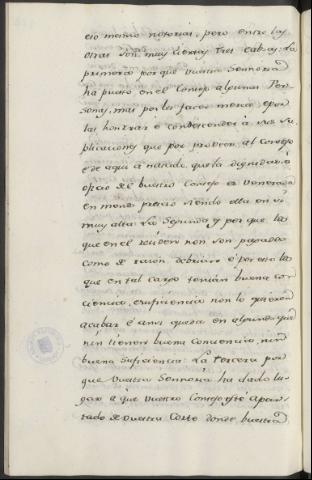 cio menos notorias, pero entre las
otras son muy ciertas tres cabsas. La
primera por que Vuestra Sennoria
ha puesto en el Consejo algunas Per
sonas, mas por les facer merced e por
las honrar e condescender à sus su
plicaciones que por proveer al Consejo
e de aqui à nascido que la dignidad o
oficio de el Vuestro Consejo es venerado
en menos precio siendo ella en si
muy alta. La segunda es por que los
que en el residen non son pagados
como de razon debian e por esto los
que en tal cargo tenian buena con
ciencia, e suficiencia non lo quieren
acebtar e ansi queda en algunos que
nin tienen buena conciencia, nin
buena suficiencia. La tercera por
que Vuestra Sennoria ha dado lu
gar à que Vuestro Consejo esté apar
tado de Vuestra Corte donde Vuestra